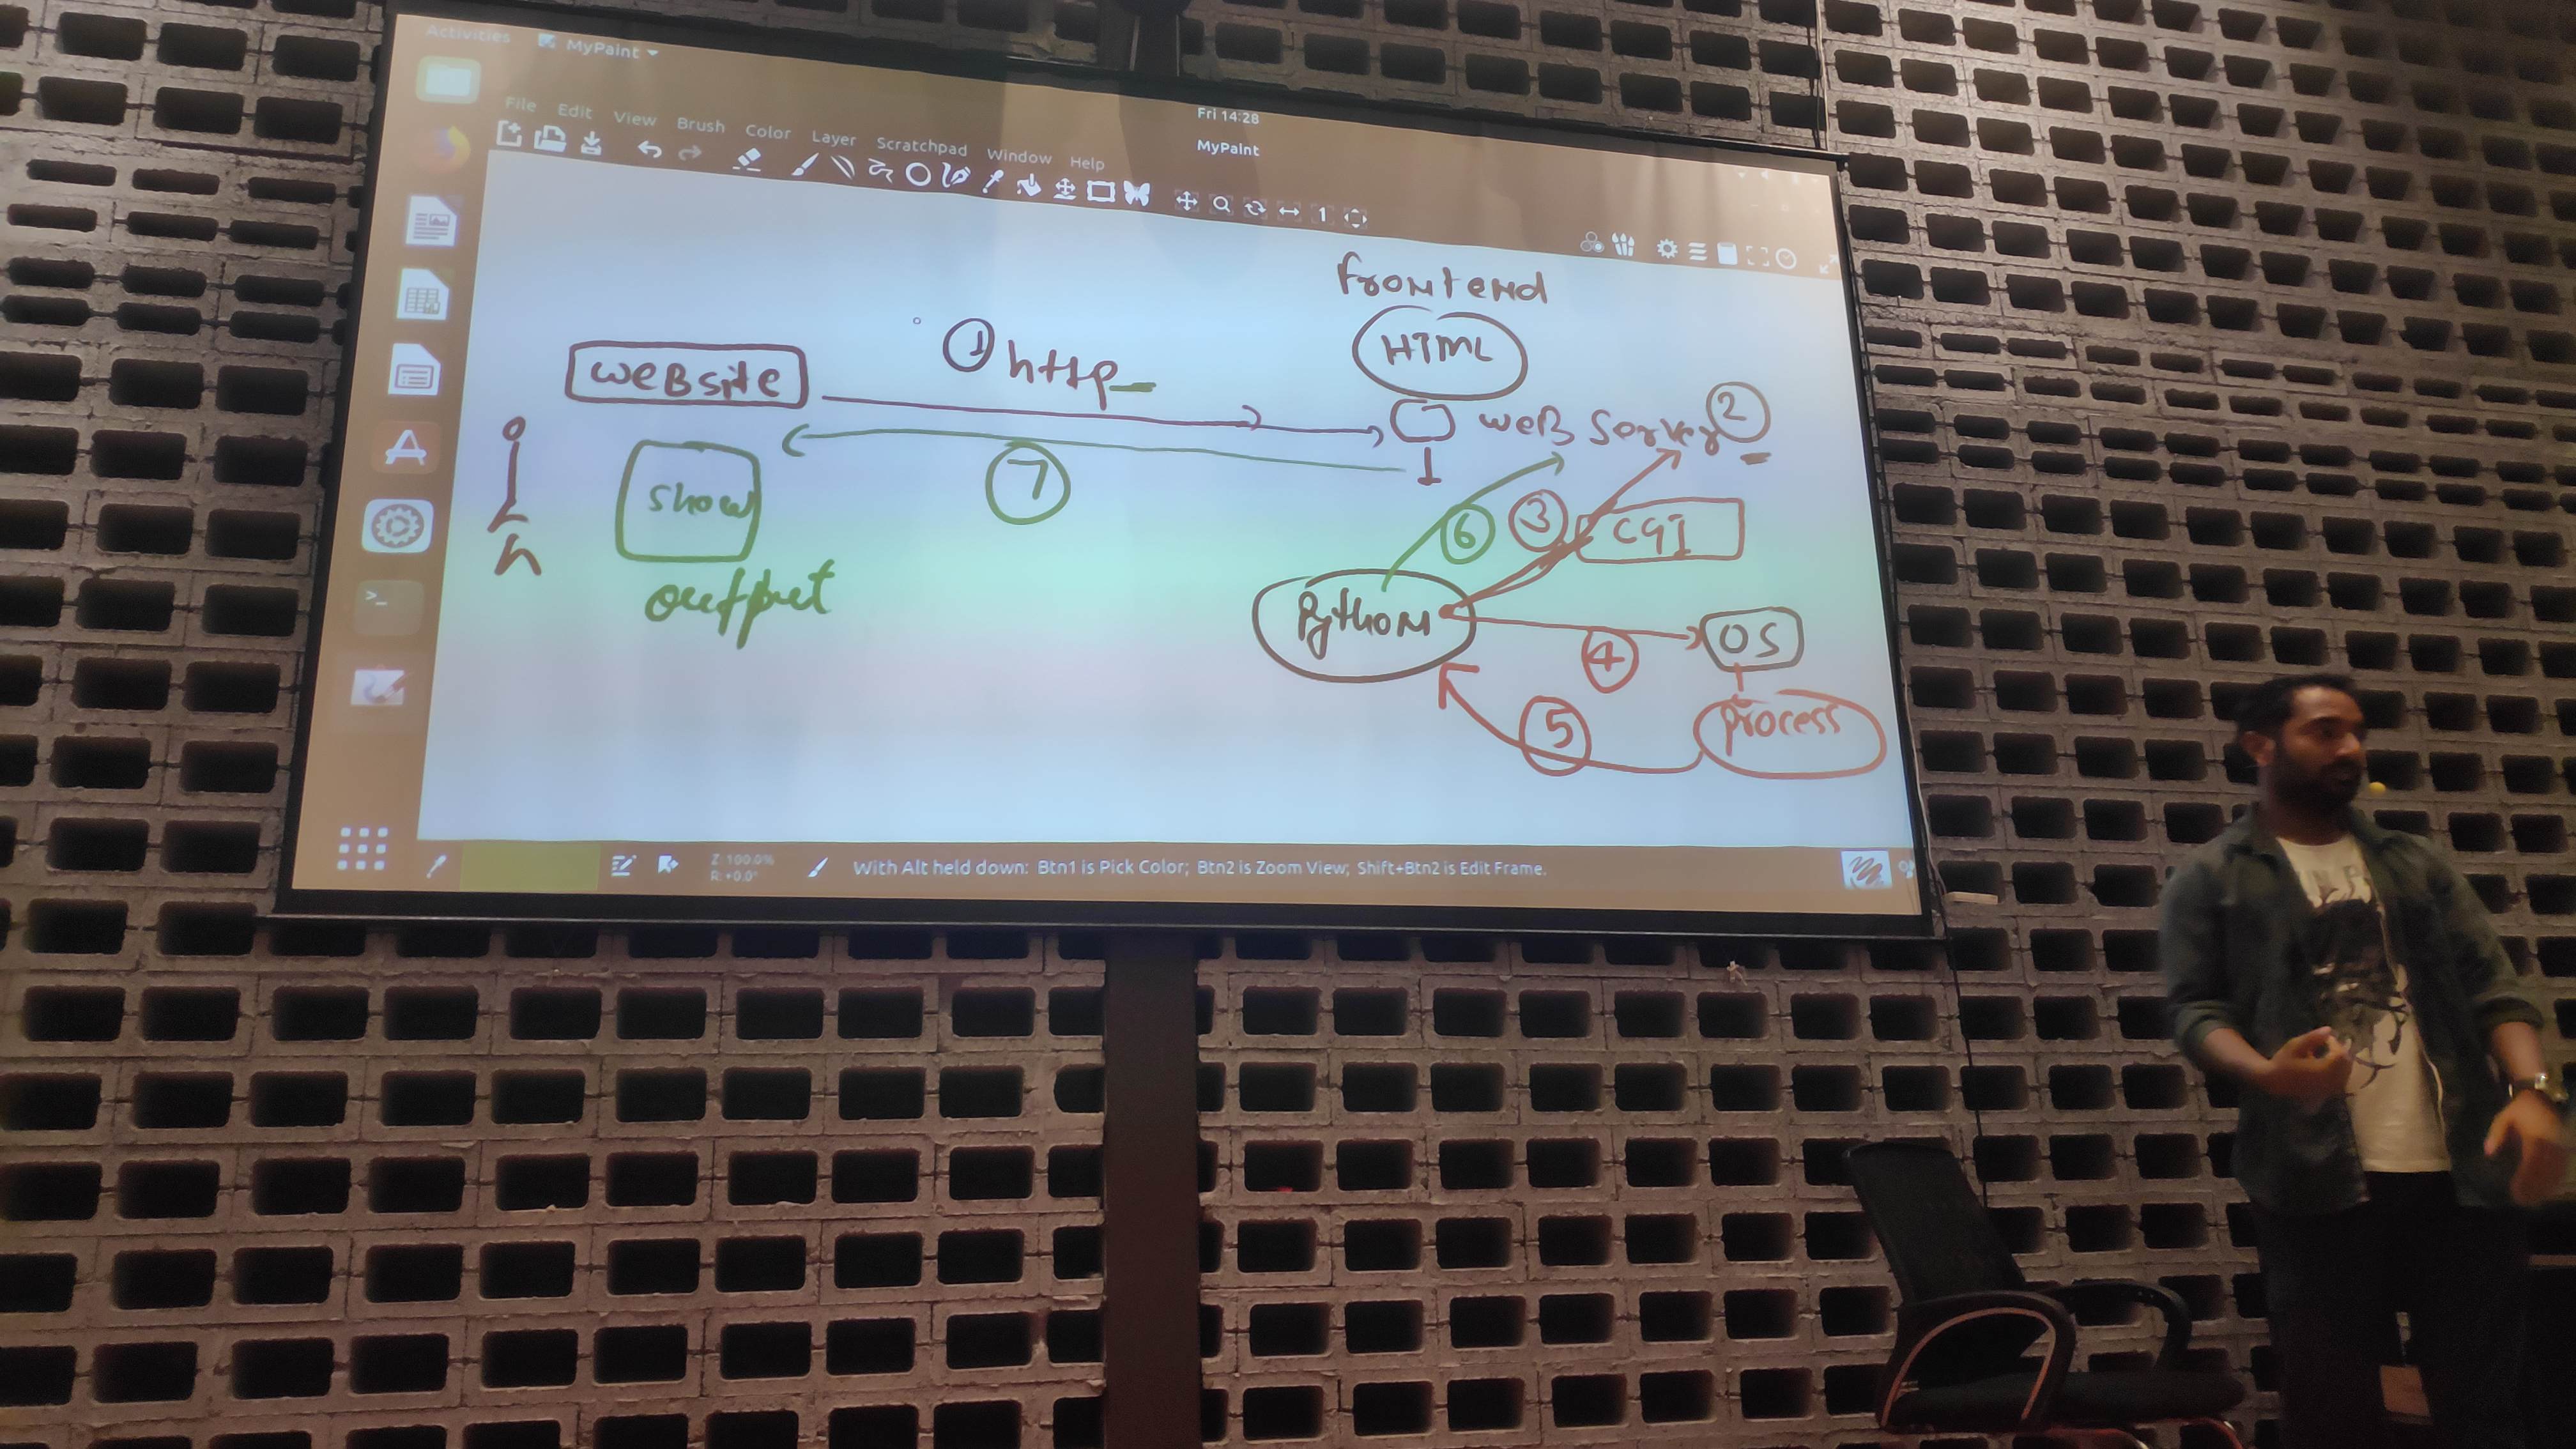 Activities MyPaint
Fri 14:28
File Edit View Brush Color Layer Scratchpad Window Help
MyPaint
1
Frontend
HTML
website
1 http
web server 2
show
output
7
6
3
CGI
h
Python
4
OS
5
process
Z: 100.0%
R: +0.0°
With Alt held down: Btn1 is Pick Color; Btn2 is Zoom View; Shift+Btn2 is Edit Frame.